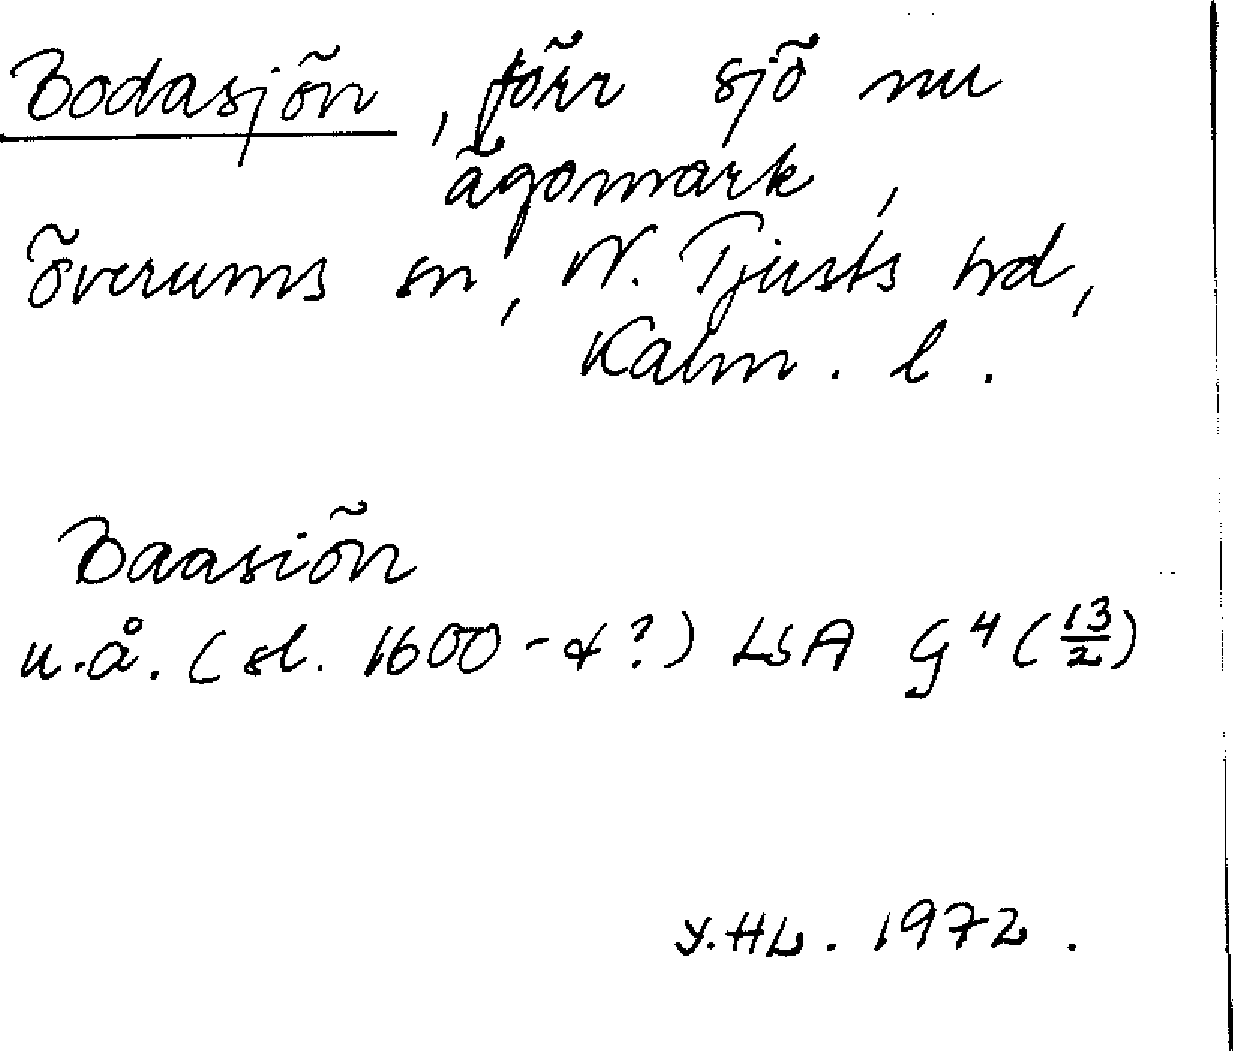 Bodasjön, förr sjö nu
ägomark,
Överums sn, N. Tjusts hd,
Kalm. l.
Baasiön
u.å. (sl. 1600-t?) LSA G⁴ (13/2)
Y.HL. 1972.